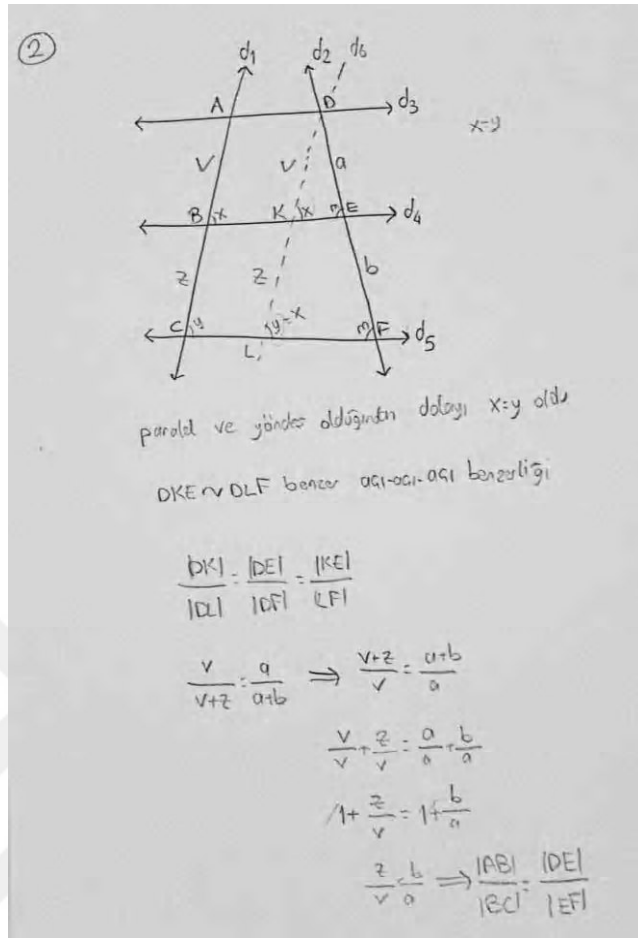 2
d₁ d₂ d₆
A D d₃
x=y
V V a
B x K x m E d₄
z z b
C y y=x m F d₅
L
paralel ve yöndeş olduğundan dolayı x=y oldu
DKE ~ DLF benzer açı-açı-açı benzerliği
|DK|/|DL| = |DE|/|DF| = |KE|/|LF|
v/(v+z) = a/(a+b) ⇒ (v+z)/v = (a+b)/a
v/v + z/v = a/a + b/a
1 + z/v = 1 + b/a
z/v = b/a ⇒ |AB|/|BC| = |DE|/|EF|